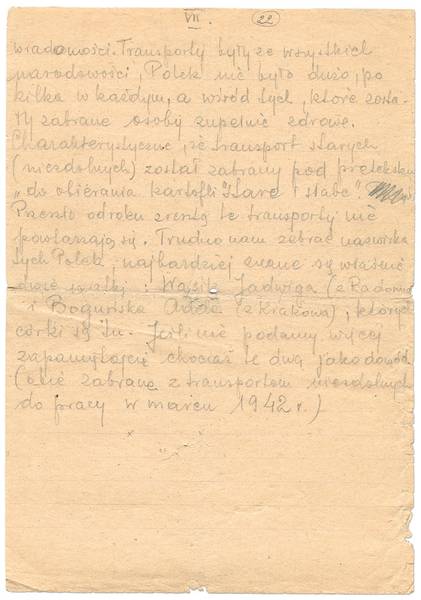 VII.
22
wiadomości. Transporty były ze wszystkich
narodowości, Polek nie było dużo, po
kilka w każdym, a wśród tych, które zosta-
ły zabrane osoby zupełnie zdrowe.
Charakterystyczne, że transport starych
(niezdolnych) został zabrany pod pretekstem
„do obierania kartofli stare i słabe".
Przeszło od roku zresztą te transporty nie
powtarzają się. Trudno nam zebrać nazwiska
tych Polek, najbardziej znane są właśnie
dwie : Wasik Jadwiga (z Radomia)
i Boguńska Adde (z Krakowa), których
córki są tu. Jeśli nie podamy więcej
zapamiętajcie chociaż te dwa jako dowód
(obie zabrane z transportem niezdolnych
do pracy w marcu 1942 r.)